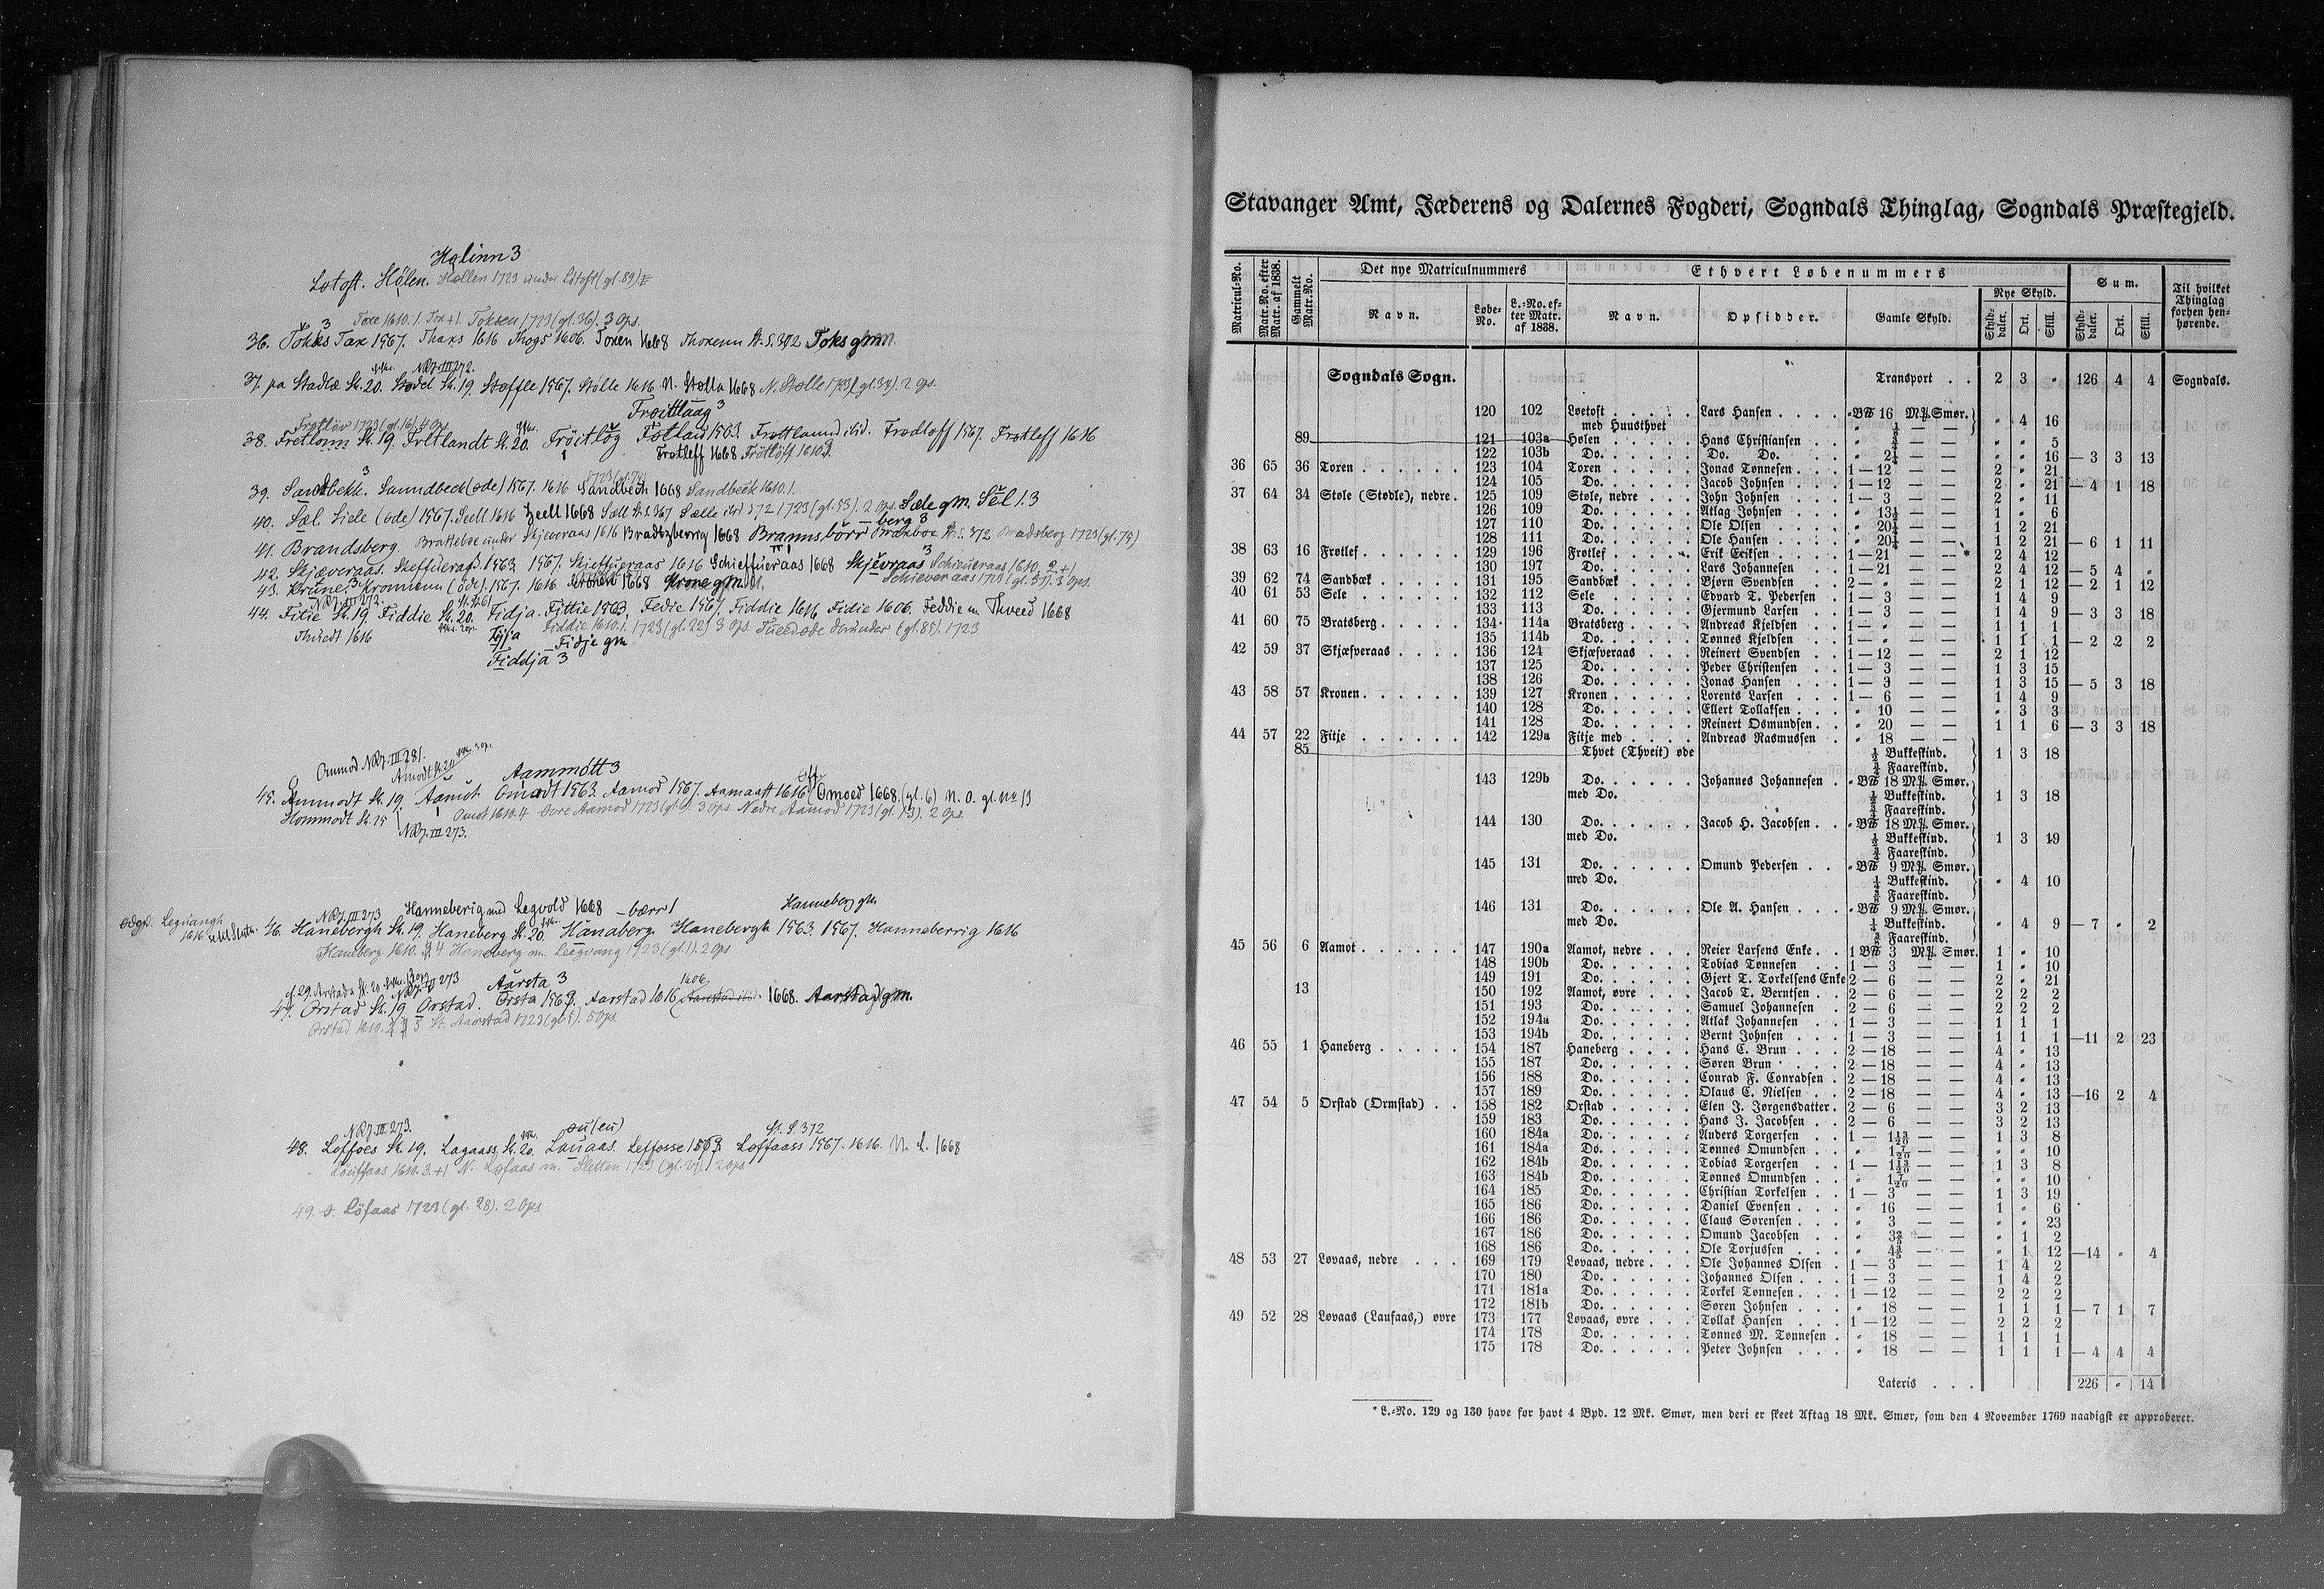 Hølinn 3
Løtoft. Hölen. Høllen 1723 under Lötoft (gl. 89)
Toxe 1610. 1. Tox + 1. Toksen 1723 (gl. 36). 3 Ops.
36. Toks Tax 1567. Thaxs 1616 Thogs 1606. Toxen 1668 Thoxenn St. S. 372 Toks gmn.
37. pa Stadlæ Sk. 20. Stødel Sk. 19. Støffle 1567. Stölle 1616 N. Stølla 1668 N. Stølle 1723 (gl. 34). 2 Ops.
NRJ. III 272.
Frøittlaag 3
Frøtlev 1723 (gl. 16) 4 Ops
38. Fretlonn Sk. 19. Frltlandt Sk. 20. Fröitlög Føtland 1563. Frøttlannd ibid. Frødloff 1567. Frøtleff 1616
Frøtleff 1668 Frötlöff 1610
39. Sandbekk. Sanndbeck (øde) 1567. 1616 Sandbech 1668 Sandbeck 1610. 1.
40. Sæl. Siele (øde) 1567. Seell 1616 Zeell 1668 Sæll St. S. 367 Sælle ibid 372 1723 (gl. 53). 2 Ops. Sæle gm. Sel 1. 3
41. Brandsberg. Brattebøe under Skjeveraas 1616 Bradtzberrig 1668 Brannsbörr St. S. 372 Bradsberg 1723 (gl. 75)
42. Skjæveraas. Skeffueraas 1563 1567. Skieffueraas 1616 Schieffueraas 1668 Skjevraas 3 Schieueraas 1610. 2 + 1
Schieveraas 1723 (gl. 37). 3 Ops.
43. Krune. 3. Kronnenn (öde). 1567. 1616 Kronen 1668 Krone gm.
NRJ. III 272.
44. Fitie Sk. 19. Fiddie Sk. 20. Fidja. Fittie 1563, Fedie 1567. Fiddie 1616 Fidie 1606. Feddie m. Thveed 1668
Thuedt 1616 Fiddie 1610. 1. 1723 (gl. 22) 3 Ops. Tueed øde derunder (gl. 85). 1723
Fijja Fidje gm
Fiddja 3
Ommod NRJ. III 281.
Amodt Sk. 20
Aammott 3
45. Ammodt Sk. 19. Aamot Omodt 1563. Aamod 1567. Aamaatt 1616 Omoed 1668. (gl. 6) N. O. gl. No 13
Hommodt Sk. 25 Omot 1610. 4 Øvre Aamod 1723 (gl. 6) 3 Ops. Nedre Aamod 1723 (gl. 13). 2 Ops.
NRJ. III 273.
Hanneberig med Legvold 1668 –bærr 1 Hanneberg gm
ødegd. Leguangh 1616
NRJ. III 273
46. Hanebergh Sk. 19. Haneberg Sk. 20. Hanaberg. Hanebergh 1563. 1567. Hanneberrig 1616
Haneberg 1610. 4 Haneberg m. Leegvang 1723 (gl. 1). 2 Ops
Aarsta 3
47. Orstad Sk. 19 Orstad. Orsta 1563. Aarstad 1616 1668. Aarstad gm.
Orstad 1610. 5 Aarstad 1723 (gl. 5). 5 Ops.
NRJ. III 273. øu (eu) St. S. 372
48. Løffoes Sk. 19. Lagaass Sk. 20. Lauaas. Leffosse 1563. Løffaass 1567. 1616. N. L. 1668
Louffaas 1610. 3. + 1 N. Løfaas m. Sletten 1723 (gl. 27) 2 Ops
49. ø. Löfaas 1723 (gl. 28). 2 Ops
Stavanger Amt, Jæderens og Dalernes Fogderi, Sogndals Thinglag, Sogndals Præstegjeld.
Matricul-No. | Matr.No. efter Matr. af 1838. | Gammelt Matr.No. | Det nye Matriculnummers | Ethvert Løbenummers | Sum. | Til hvilket Thinglag forhen henhørende.
Navn. | Løbe-No. | L.-No. efter Matr. af 1838. | Navn. | Opsidder. | Gamle Skyld. | Nye Skyld. | Skylddaler. | Ort. | Skill. | Skylddaler. | Ort. | Skill.
Sogndals Sogn. Transport . . 2 3 " 126 4 4 Sogndals.
120 102 Løetoft Lars Hansen " BW 16 Mk. Smør. " 4 16
med Huusthvet
89 121 103a Hølen Hans Christiansen " " 5
122 103b Do. Do. Do. " 2¼ — — " " 16 — 3 3 13
36 65 36 Toxen 123 104 Toxen Jonas Tønnesen 1—12 — — 2 " 21
124 105 Do. Jacob Johnsen 1—12 — — 2 " 21 — 4 1 18
37 64 34 Støle (Stødle), nedre. 125 109 Støle, nedre John Johnsen 1— 3 — — 2 " 11
126 109 Do. Atlag Johnsen " 13½ — — 1 " 6
127 110 Do. Ole Olsen " 20¼ — — 1 2 21
128 111 Do. Ole Hansen " 20¼ — — 1 2 21 — 6 1 11
38 63 16 Frøtlef 129 196 Frøtlef Erik Eriksen 1—21 — —* 2 4 12
130 197 Do. Lars Johannesen 1—21 — — 2 4 12 — 5 4 "
39 62 74 Sandbæk 131 195 Sandbæk Bjørn Svendsen 2— " — — 2 1 12 — 2 1 12
40 61 53 Sele 132 112 Sele Edvard T. Pedersen 1— 3 — — 1 4 9
133 113 Do. Gjermund Larsen 1— 3 — — 1 4 9 — 3 3 18
41 60 75 Bratsberg 134 114a Bratsberg Andreas Kjeldsen 1— " — — 1 1 1
135 114b Do. Tønnes Kjeldsen 1— " — — 1 1 1 — 2 2 2
42 59 37 Skjæfveraas 136 124 Skjæfveraas Reinert Svendsen 1—12 — — 2 1 12
137 125 Do. Peder Christensen 1— 3 — — 1 3 15
138 126 Do. Jonas Hansen 1— 3 — — 1 3 15 — 5 3 18
43 58 57 Kronen 139 127 Kronen Lorents Larsen 1— 6 — — 1 4 9
140 128 Do. Ellert Tollaksen " 10 — — " 3 3
141 128 Do. Reinert Osmundsen " 20 — — 1 1 6 — 3 3 18
44 57 22 Fitje 142 129a Fitje med Andreas Rasmussen " 18 — —
85 Thvet (Thveit) øde ½ Bukkeskind. 1 3 18
Faareskind.
143 129b Do. Johannes Johannesen " BW 18 Mk. Smør.
med Do. ½ Bukkeskind. 1 3 18
Faareskind.
144 130 Do. Jacob H. Jacobsen " BW 18 Mk. Smør.
med Do. ½ Bukkeskind. 1 3 19
Faareskind.
145 131 Do. Omund Pedersen " BW 9 Mk. Smør.
med Do. ¼ Bukkeskind. " 4 10
Faareskind.
146 131 Do. Ole A. Hansen " BW 9 Mk. Smør.
med Do. ¼ Bukkeskind. " 4 9 — 7 " 2
Faareskind.
45 56 6 Aamot 147 190a Aamot, nedre Reier Larsens Enke 1 BW 3 Mk. Smør. 1 " 10
148 190b Do. Tobias Tønnesen 1— 3 — — 1 " 10
149 191 Do. Gjert T. Torkelsens Enke 2— 6 — — 2 " 21
13 150 192 Aamot, øvre Jacob T. Berntsen 2— 6 — — 2 2 2
151 193 Do. Samuel Johannesen 2— 6 — — 2 2 2
152 194a Do. Atlak Johannesen 1— 3 — — 1 1 1
153 194b Do. Bernt Johnsen 1— 3 — — 1 1 1 —11 2 23
46 55 1 Haneberg 154 187 Haneberg Hans C. Brun 2—18 — — 4 " 13
155 187 Do. Søren Brun 2—18 — — 4 " 13
156 188 Do. Conrad F. Conradsen 2—18 — — 4 " 13
157 189 Do. Olaus C. Nielsen 2—18 — — 4 " 13 —16 2 4
47 54 5 Orstad (Ormstad) 158 182 Orstad Elen J. Jørgensdatter 2— 6 — — 3 2 13
159 183 Do. Hans J. Jacobsen 2— 6 — — 3 2 13
160 184a Do. Anders Torgersen 1— 1 13/20 — — 1 3 8
161 184a Do. Tønnes Omundsen " 1 7/20 — — " " 10
162 184b Do. Tobias Torgersen 1— 1 13/20 — — 1 3 8
163 184b Do. Tønnes Omundsen " 1 7/20 — — " " 10
164 185 Do. Christian Torkelsen 1— 3 — — 1 3 19
165 186 Do. Daniel Evensen " 16 — — 1 " 6
166 186 Do. Claus Sørensen " 3 — — " " 23
167 186 Do. Omund Jacobsen " 3⅖ — — " 1 2
168 186 Do. Ole Torjussen " 4⅗ — — " 1 12 —14 " 4
48 53 27 Løvaas, nedre 169 179 Løvaas, nedre Ole Johannes Olsen 1— 3 — — 1 4 2
170 180 Do. Johannes Olsen 1— 3 — — 1 4 2
171 181a Do. Torkel Tønnesen 1—12 — — 2 2 2
172 181b Do. Søren Johnsen " 18 — — 1 1 1 — 7 1 7
49 52 28 Løvaas (Laufaas,) øvre 173 177 Løvaas, øvre Tollak Hansen 1—12 — — 2 2 2
174 178 Do. Tønnes M. Tønnesen " 18 — — 1 1 1
175 178 Do. Peter Johnsen " 18 — — 1 1 1 — 4 4 4
Lateris . . . 226 " 14
* L.-No. 129 og 130 have før havt 4 Bpd. 12 Mk. Smør, men deri er skeet Aftag 18 Mk. Smør, som den 4 November 1769 naadigst er approberet.